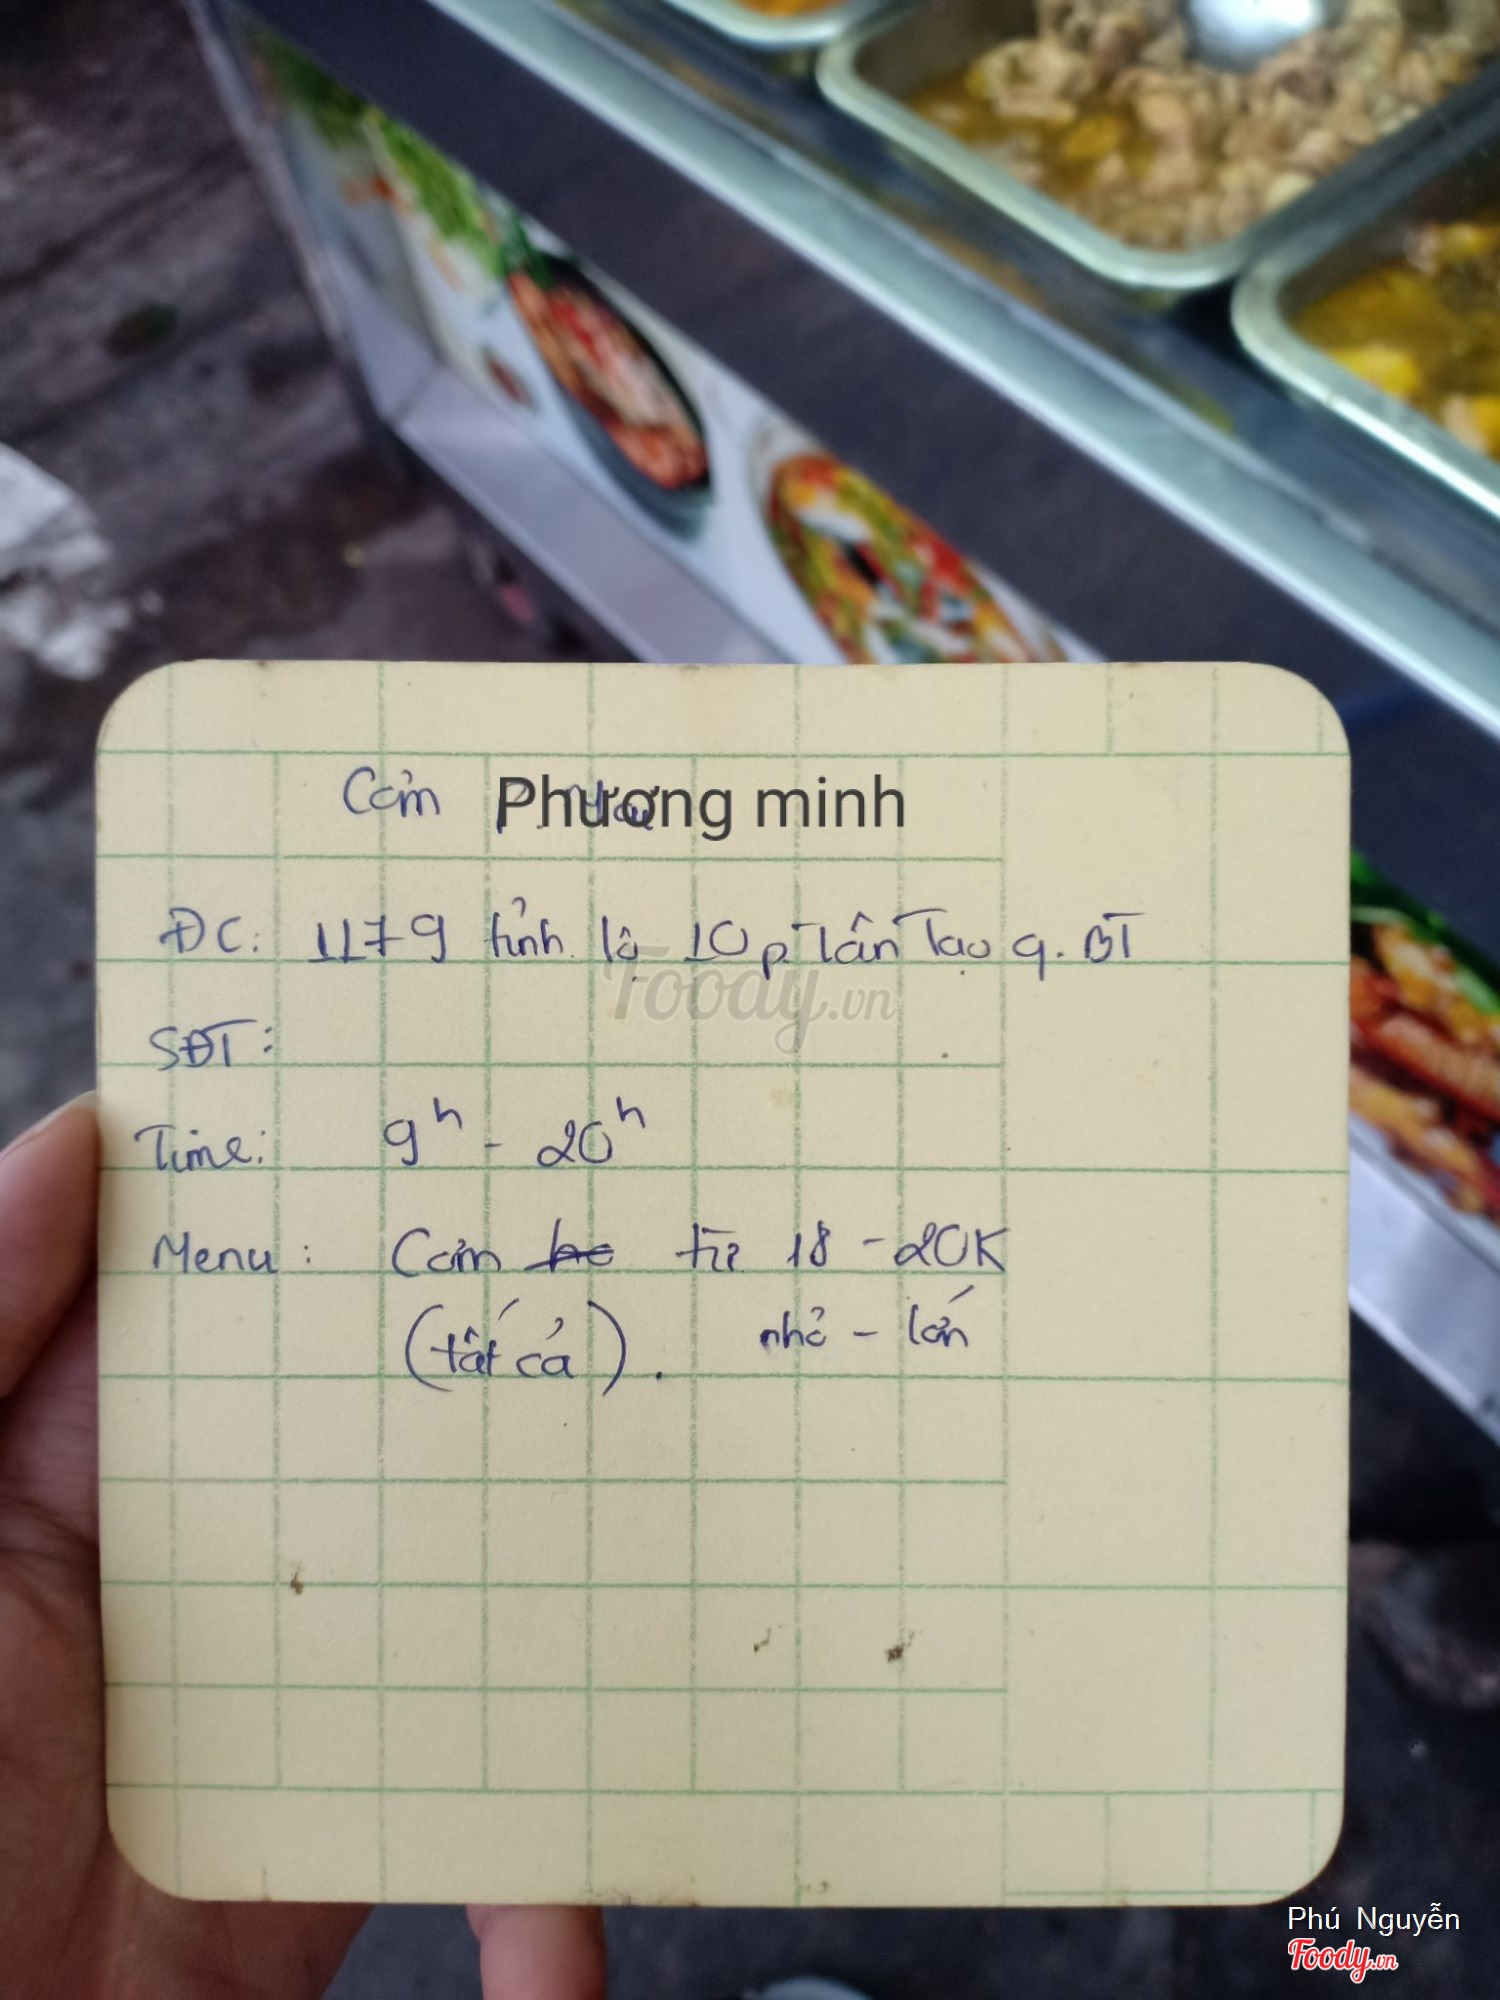 Cơm Phương minh
ĐC: 1179 tỉnh lộ 10 p Tân Tạo q. BT
Foody.vn
SĐT:
Time: 9h - 20h
Menu: Cơm từ 18 - 20K
(tất cả). nhỏ - lớn
Phú Nguyễn
Foody.vn